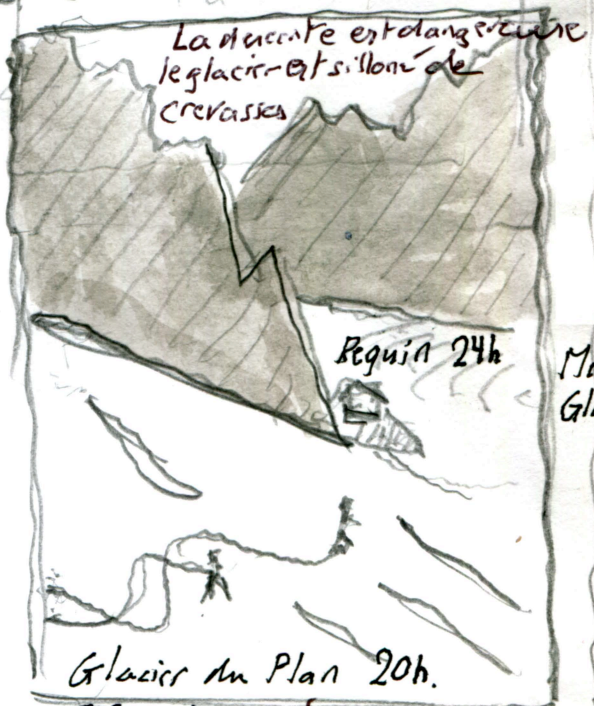 La descente est dangereuse
le glacier est silloné de
crevasses
Requin 24h
Glacier du Plan 20h.